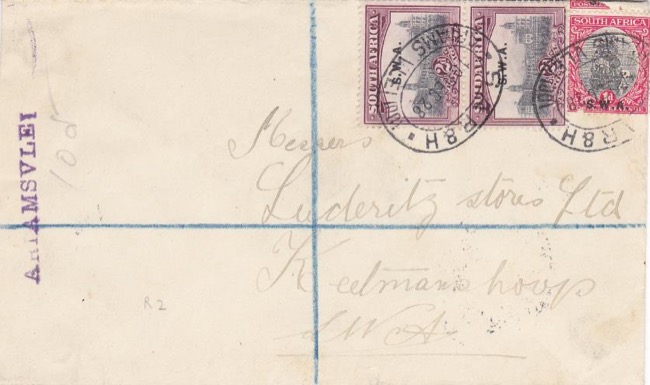 SOUTH AFRICA
S.W.A.
2d
S.W.A.
SOUTH AFRICA
S.W.A.
d
R & H
R & H
ARIAMSVLEI
10d
Messrs
Luderitz stores Ltd
Keetmanshoop
SWA
R2